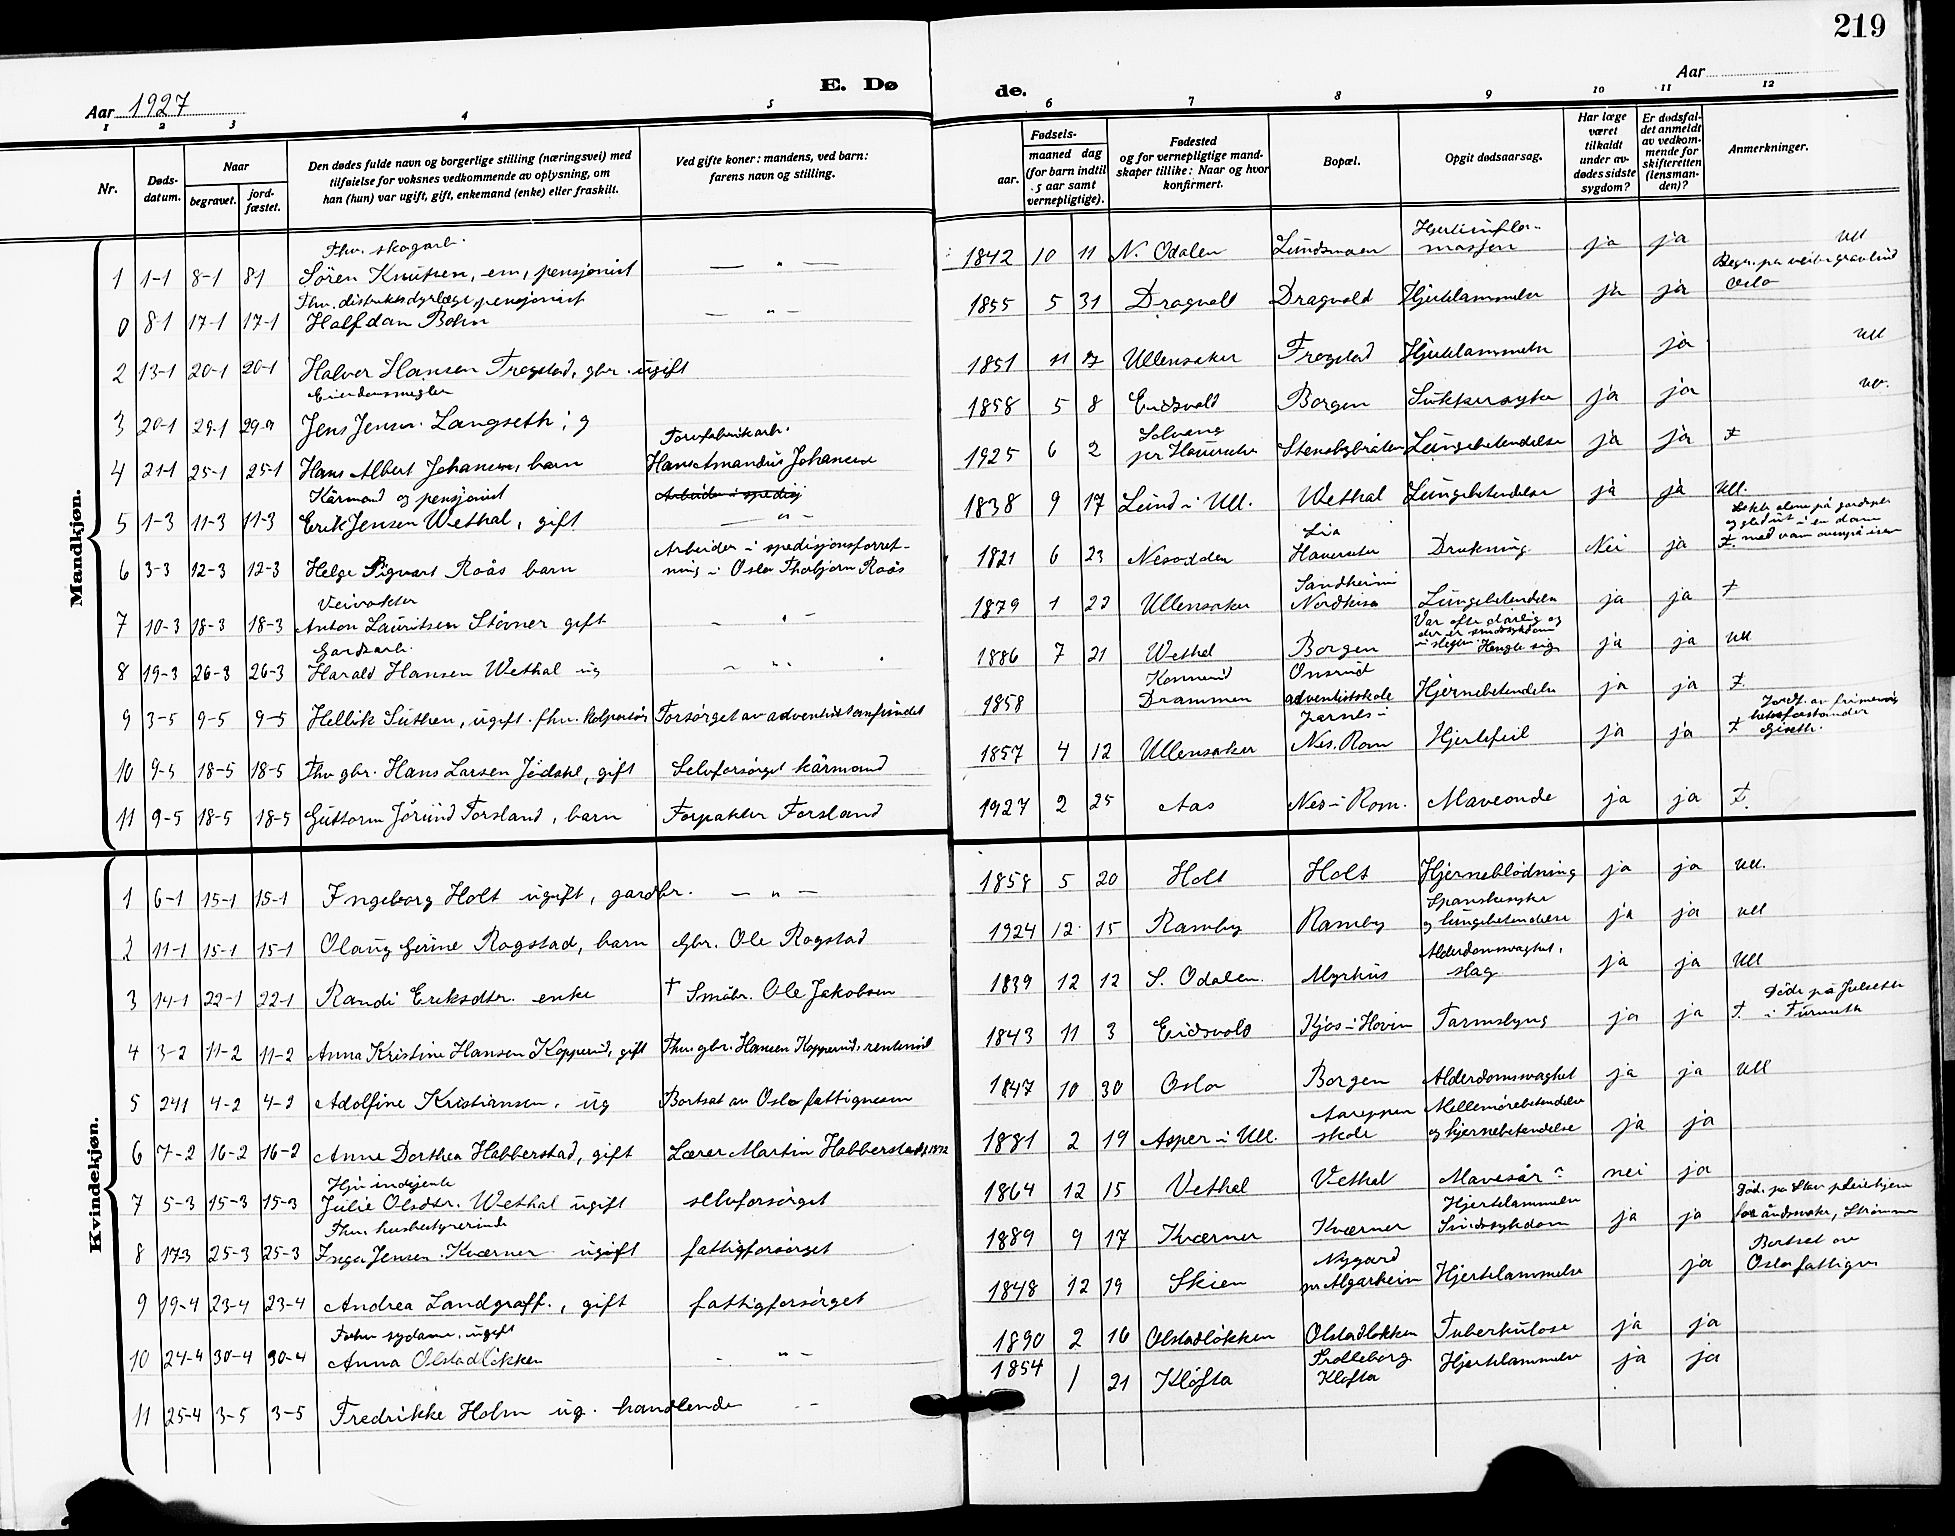 219
Aar 1927
E. Dø
de.
Aar
1 2 3 4 5 6 7 8 9 10 11 12
Nr.
Døds-
datum.
Naar
begravet.
jord-
fæstet.
Den dødes fulde navn og borgerlige stilling (næringsvei) med
tilføielse for voksnes vedkommende av oplysning, om
han (hun) var ugift, gift, enkemand (enke) eller fraskilt.
Ved gifte koner: mandens, ved barn:
farens navn og stilling.
Fødsels-
aar.
maaned dag
(for barn indtil
5 aar samt
vernepligtige).
Fødested
og for vernepligtige mand-
skaper tillike: Naar og hvor
konfirmert.
Bopæl.
Opgit dødsaarsag.
Har læge
været
tilkaldt
under av-
dødes sidste
sygdom?
Er dødsfal-
det anmeldt
av vedkom-
mende for
skifteretten
(lensman-
den)?
Anmerkninger.
Mandkjøn.
Fhv. skogarb.
Hjerteinfla-
1 1-1 8-1 8-1 Sören Knutsen, em, pensjonist — " — 1842 10 11 N. Odalen Lundsmoen masjon ja ja Ull
Fhv. distriktsdyrlæge, pensjonist
0 8-1 17-1 17-1 Halfdan Bohn — " — 1855 5 31 Dragvold Dragvold Hjertelammelse ja ja Oslo
2 13-1 20-1 20-1 Halvor Hansen Trogstad, gbr. ugift 1851 11 7 Ullensaker Trogstad Hjertelammelse ja Ull
Eiendomsmegler
3 20-1 29-1 29-1 Jens Jensen Langseth, g 1858 5 8 Eidsvold Borgen Sukkersyke ja ja Ull.
Torvfabrikarb.
Solvang
4 21-1 25-1 25-1 Hans Albert Johansen, barn Hans Amandus Johansen 1925 6 2 pr Hauerseter Stensbybråten Lungebetendelse ja ja F
Kårmand og pensjonist Arbeider i spedisj
5 1-3 11-3 11-3 Erik Jensen Wethal, gift — " — 1838 9 17 Lund i Ull. Wethal Lungebetendelse ja ja Ull.
Arbeider i spedisjonsforret-
Lia
6 3-3 12-3 12-3 Helge Sigvart Roås barn ning i Oslo Thorbjørn Roås 1921 6 23 Nesodden Hauerseter Drukning Nei ja F.
Veivokter
Sandheim i
7 10-3 18-3 18-3 Anton Lauritsen Stövner gift - " - 1879 1 22 Ullensaker Nordkisa Lungebetendelse ja ja F
Gardsarb.
Var ofte dårlig og
der er sindssykdom
8 19-3 26-3 26-3 Harald Hansen Wethal ug - " - 1886 7 21 Wethal Borgen i slegten. Hengte sig ja ja Ull
Konnerud Onsrud
9 3-5 9-5 9-5 Hellik Suthen, ugift. fhv. kolportör Forsörget av adventistsamfundet 1858 Drammen adventistskole Hjernebetendelse ja ja F.
Jarnes i
10 9-5 18-5 18-5 Fhv gbr. Hans Larsen Jödahl, gift Selvforsörget kårmand 1857 4 12 Ullensaker Nes. Rom Hjertefeil ja ja F
11 9-5 18-5 18-5 Guttorm Jörund Forsland, barn Forpakter Forsland 1927 2 25 Aas Nes i Rom. Maveonde ja ja F.
Kvindekjøn.
1 6-1 15-1 15-1 Ingeborg Holt ugift, gardbr. — " — 1858 5 20 Holt Holt Hjerneblödning ja ja Ull.
Spanskesyke
2 11-1 15-1 15-1 Olaug Gerine Rogstad, barn Gbr. Ole Rogstad 1924 12 15 Ramby Ramby og lungebetendelse ja ja Ull
Alderdomsvaghet,
3 14-1 22-1 22-1 Randi Eriksdtr. enke † Småbr. Ole Jakobsen 1839 12 12 S. Odalen. Myrhus slag ja ja Ull
4 3-2 11-2 11-2 Anna Kristine Hansen Kopperud, gift Fhv. gbr. Hansen Kopperud, 1843 11 3 Eidsvold Kjos i Hovin Tarmslyng ja ja F.
Döde på Julseth
i Furuseth
5 24-1 4-2 4-2 Adolfine Kristiansen, ug Bortsat av Oslo fattigvesen 1847 10 30 Oslo Borgen Alderdomsvaghet ja ja Ull
Aareppen Mellemörebetendelse
6 7-2 16-2 16-2 Anne Dorthea Habberstad, gift Lærer Martin Habberstad 1881 2 19 Asper i Ull. skole og hjernebetendelse ja ja
Hjv indejente
7 5-3 15-3 15-3 Julie Olsdtr. Wethal ugift selvforsörget 1864 12 15 Vethal Vethal Mavesår? nei ja
Fhv. husbestyrerinde
Hjertelammelse
8 17-3 25-3 25-3 Inga Jensen Kværner ugift fattigforsörget 1889 9 17 Kværner Kværner Sindssykdom ja ja
Nygard
9 19-4 23-4 23-4 Andrea Landgraff, gift fattigforsörget 1848 12 19 Skien pr Algarheim Hjertelammelse ja
Bortsat av
Oslo fattigv
Forhv sydame, ugift
10 24-4 30-4 30-4 Anna Olstadlökken - " - 1890 2 16 Olstadlökken Olstadlökken Tuberkulose ja ja
Trolleborg
11 25-4 3-5 3-5 Fredrikke Holm ug. handlende - - 1854 1 21 Klöfta Klöfta Hjertelammelse ja ja